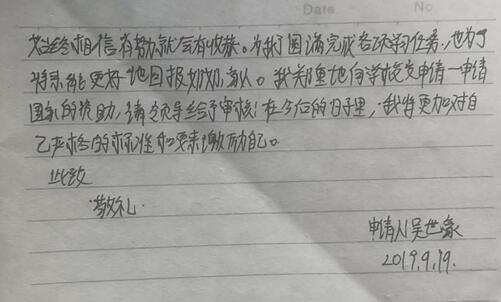 Date
No
始终相信有努力就会有收获。为我圆满完成各环学习任务,也为了
将来能更好地回报奶奶,家人。我郑重地向学校交申请一申请
国家的资助,请领导给予审核!在今后的日子里,我将更加对自
己严格的标准和要来激励自己。
此致
敬礼.
申请人吴世豪
2019.9.19.